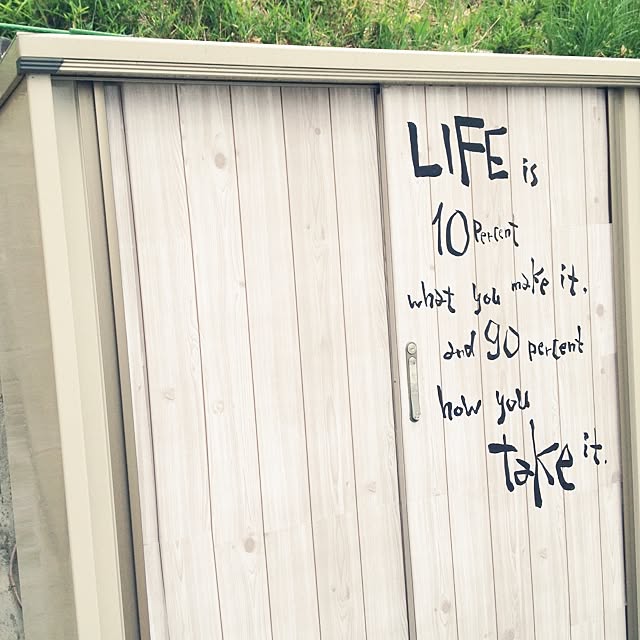 LIFE is
10 Percent
what you make it.
and 90 percent
how you
take it.